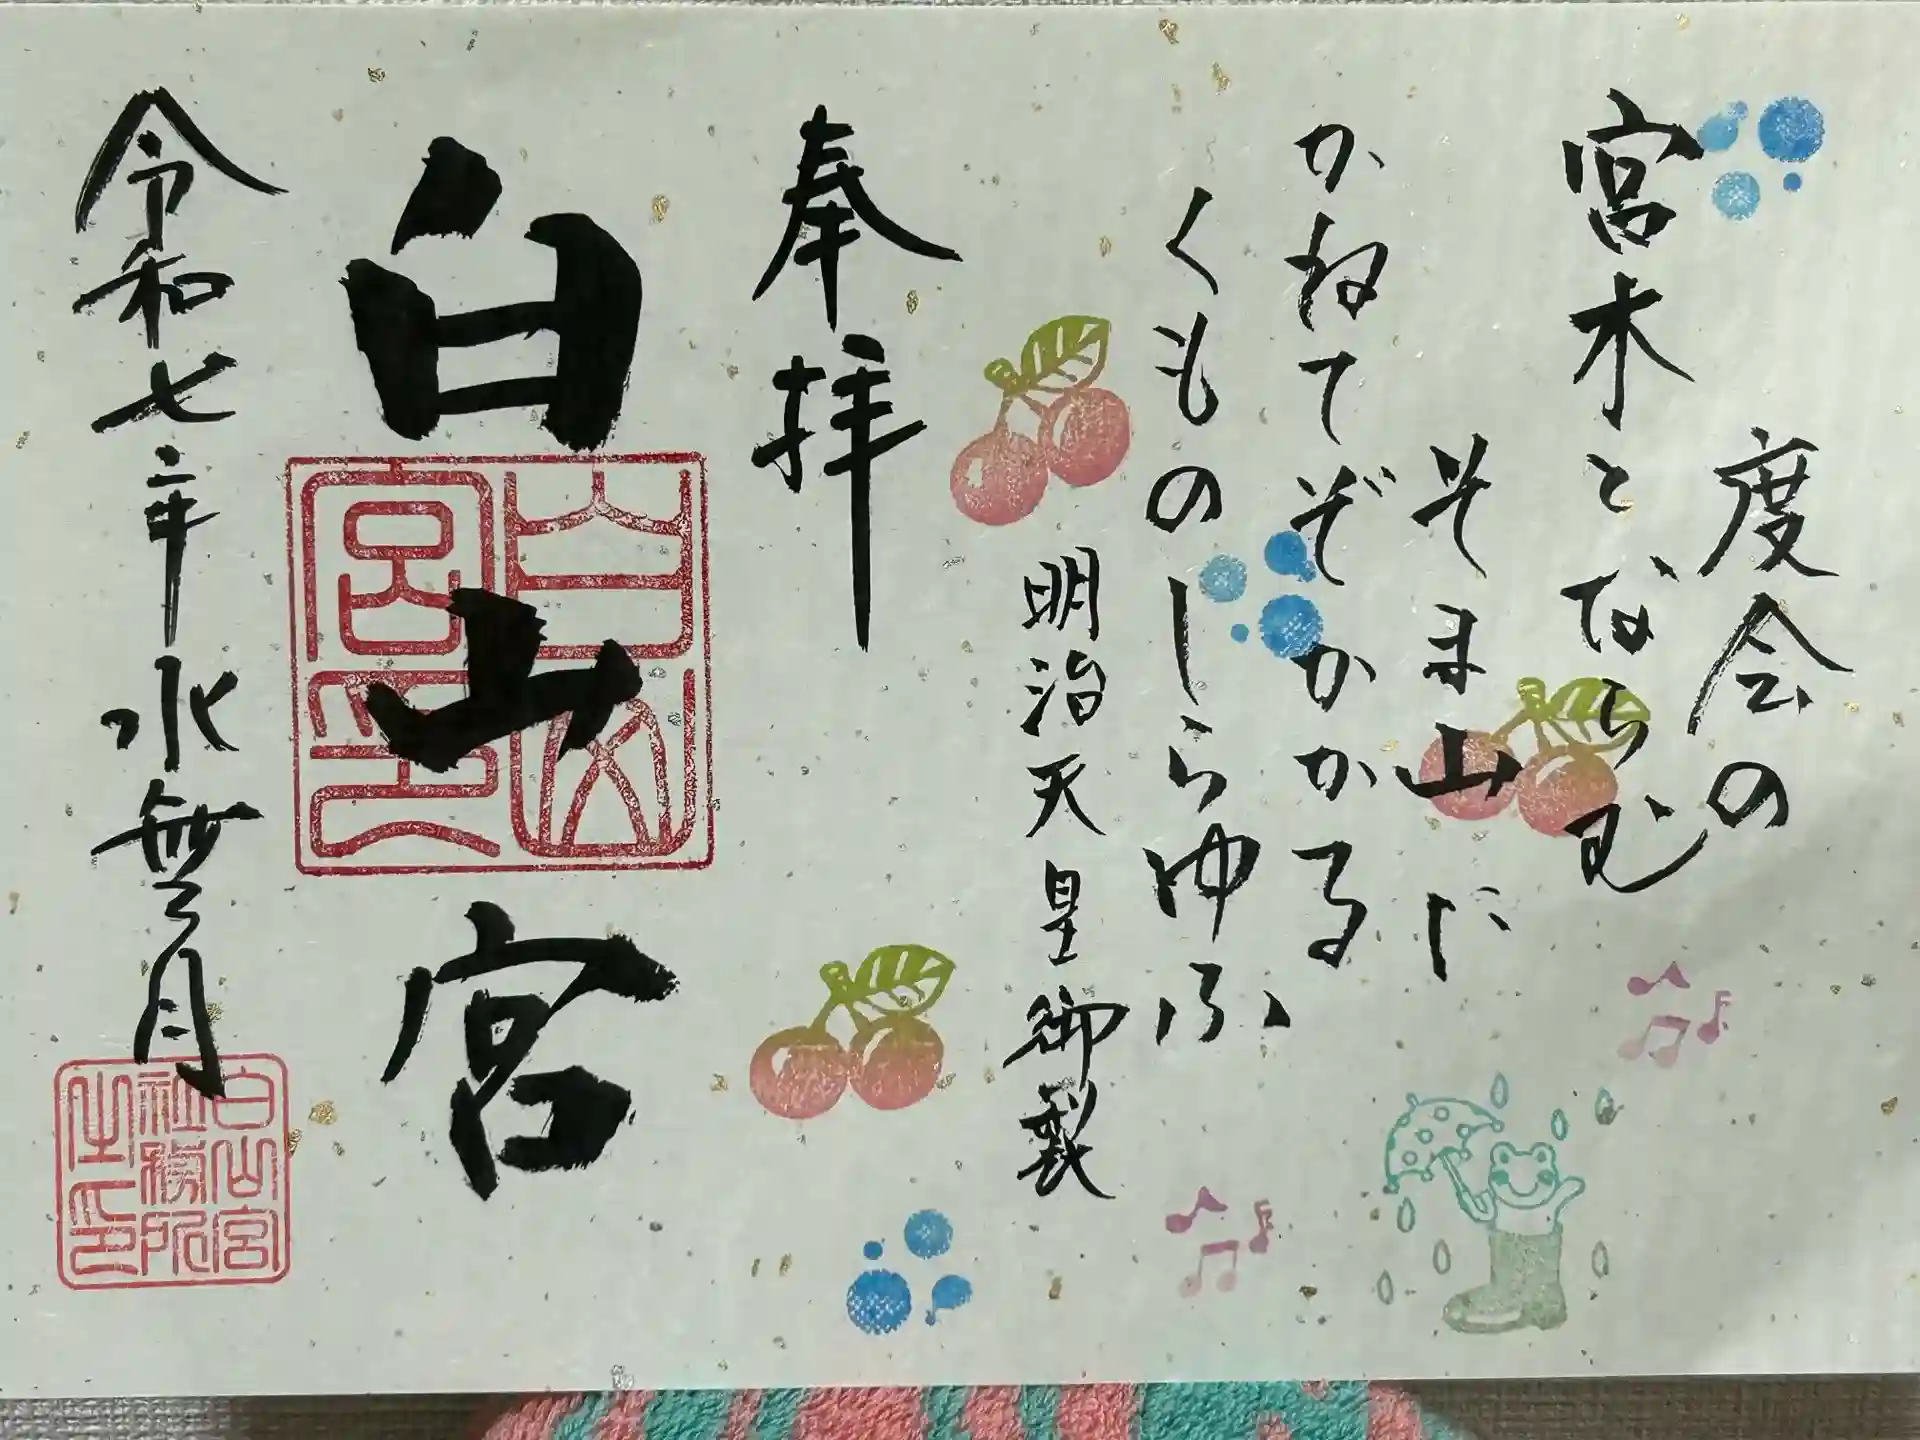 度会の
宮木とならむ
そま山に
かねてぞかかる
くものしらゆふ
明治天皇御製
奉拝
白山宮
白山宮印
令和七年水無月
白山宮
社務所
之印